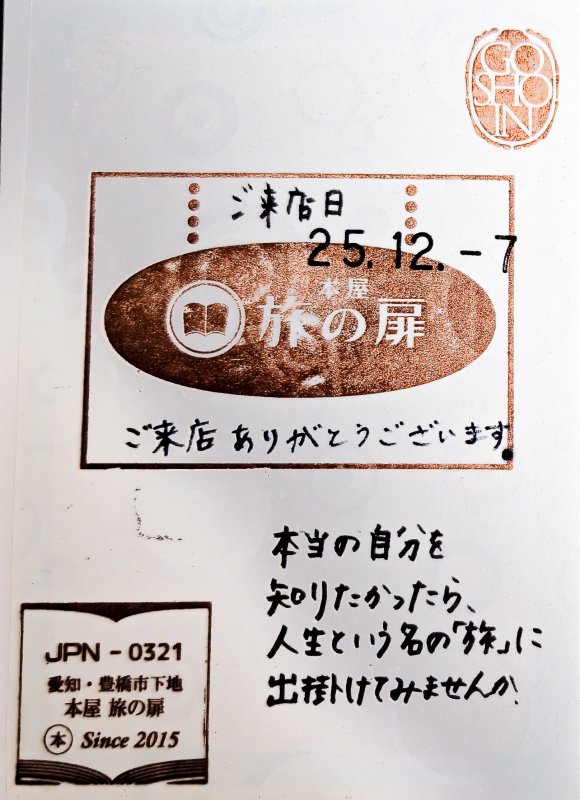 GO
SHO
IN
ご来店日
25.12.-7
本屋
旅の扉
ご来店ありがとうございます
本当の自分を
知りたかったら、
人生という名の「旅」に
出掛けてみませんか?
JPN-0321
愛知・豊橋市下地
本屋 旅の扉
本 Since 2015